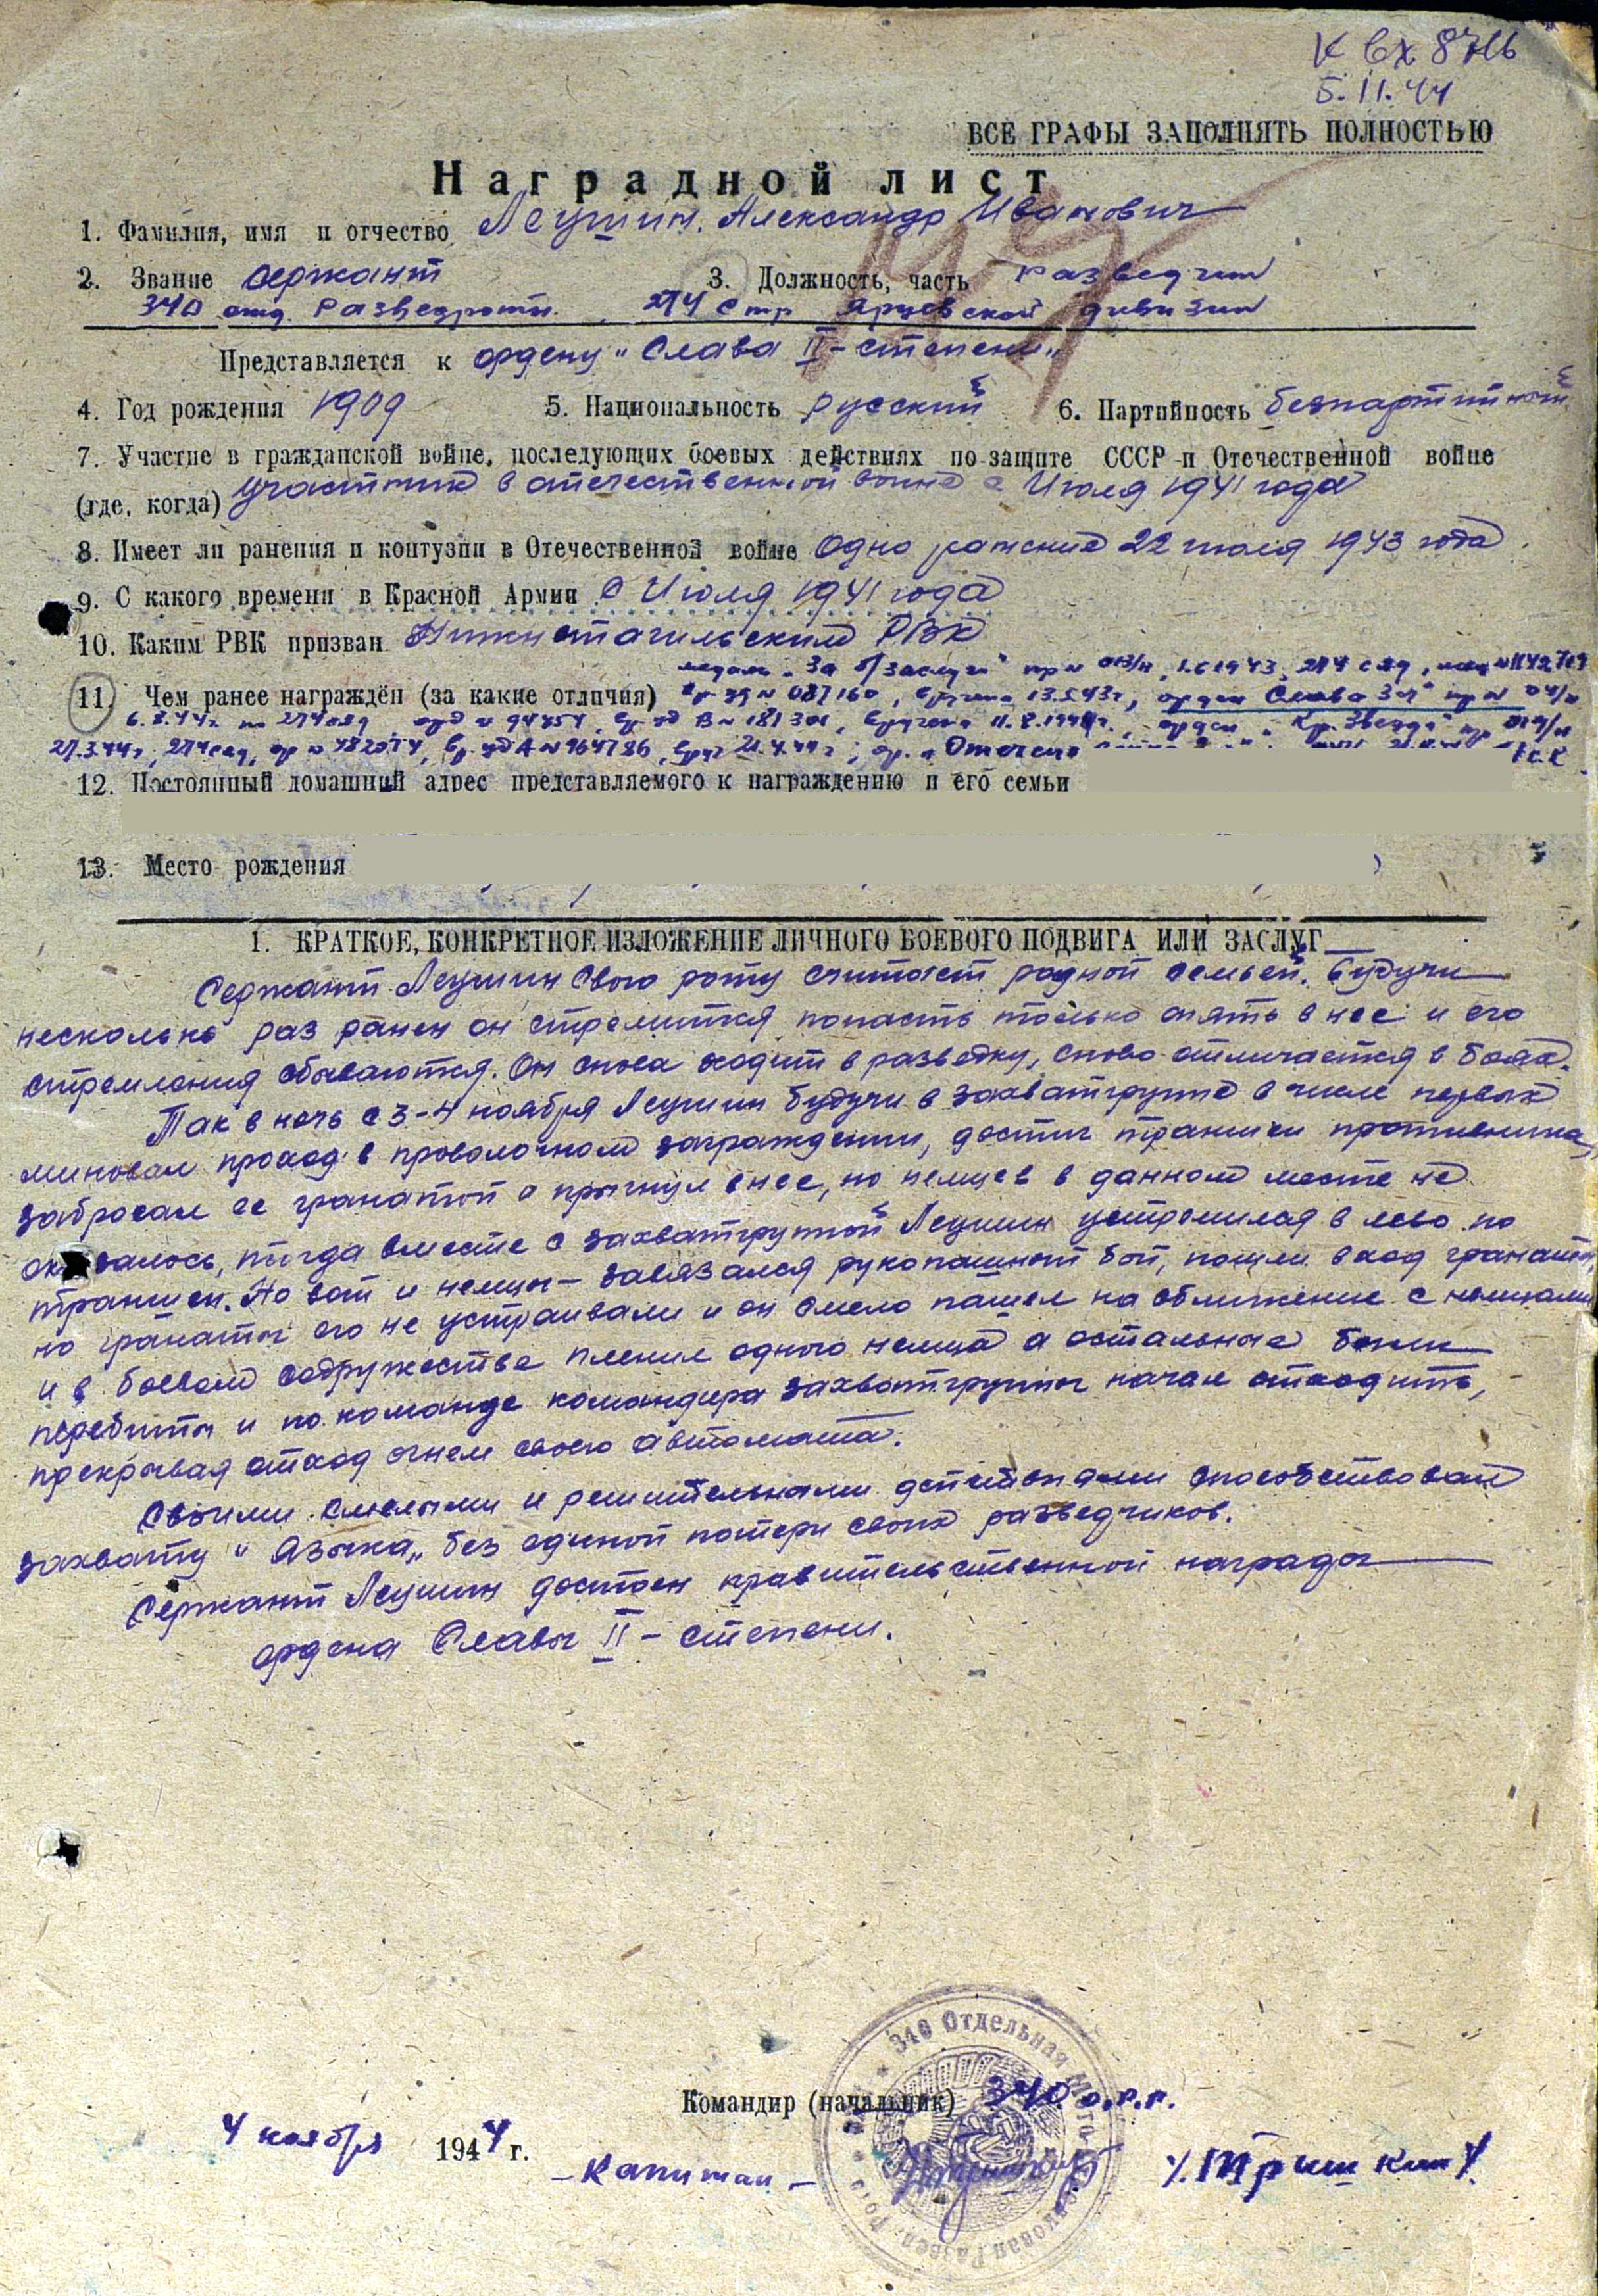 К вх 87
5.11.44
ВСЕ ГРАФЫ ЗАПОЛНЯТЬ ПОЛНОСТЬЮ
Наградной лист
1. Фамилия, имя и отчество Леушин, Александр Иванович
2. Звание Сержант 3. Должность, часть разведчик
340 отд. Разведроты, 274 Стр Ярцевской дивизии
Представляется к ордену "Слава II-степени"
4. Год рождения 1909 5. Национальность русский 6. Партийность безпартийный
7. Участие в гражданской войне, последующих боевых действиях по защите СССР и Отечественной войне
(где, когда) участник в отечественной войне с Июля 1941 года
8. Имеет ли ранения и контузии в Отечественной войне одно ранение 22 июля 1943 года.
9. С какого времени в Красной Армии С Июля 1941 года
10. Каким РВК призван Нижнетагильским РВК
медаль "За б/заслуги" пр № 1.6.1943, 274 сяд, мед №
11. Чем ранее награждён (за какие отличия) вр. уд № 087160, вручена 13.5.43г, орден Слава 3 ст" пр №
6.8.44г. по 274 сяд орд № 94754, вр. уд В № 181301, вручена 11.8.1944г., орден "Кр. Звезда" пр
27.3.44г, 274 сяд, ор № 482074, вр. уд А № 964786, вруч 21.4.44г; ор.
12. Постоянный домашний адрес представляемого к награждению и его семьи
13. Место рождения
1. КРАТКОЕ, КОНКРЕТНОЕ ИЗЛОЖЕНИЕ ЛИЧНОГО БОЕВОГО ПОДВИГА ИЛИ ЗАСЛУГ
Сержант Леушин свою роту считает родной семьей. Будучи
несколько раз ранен он стремится попасть только опять в нее и его
стремления сбываются. Он снова ходит в разведку, снова отличается в боях.
Так в ночь с 3-4 ноября Леушин будучи в захватгруппе в числе первых
миновал проход в проволочном заграждении, достиг траншеи противника,
забросал ее гранатой и прыгнул в нее, но немцев в данном месте не
оказалось, тогда вместе с захватгруппой Леушин устромился в лево по
траншеи. Но вот и немцы - завязался рукопашный бой, пошли в ход гранаты,
но гранаты его не устраивали и он смело пошел на сближение с немцами
и в боевом содружестве пленил одного немца а остальные были
перебиты и по команде командира захватгруппы начал отходить,
прекрывая отход огнем своего автомата.
Своими смелыми и решительными действиями способствовал
захвату "Языка" без единой потери своих разведчиков.
Сержант Леушин достоен правительственной награды
ордена Славы II-степени.
340 Отдельная Мото-Развед. Рота
Командир (начальник) 340 о.р.р.
4 ноября 1944 г.
- Капитан - /Тришкин/